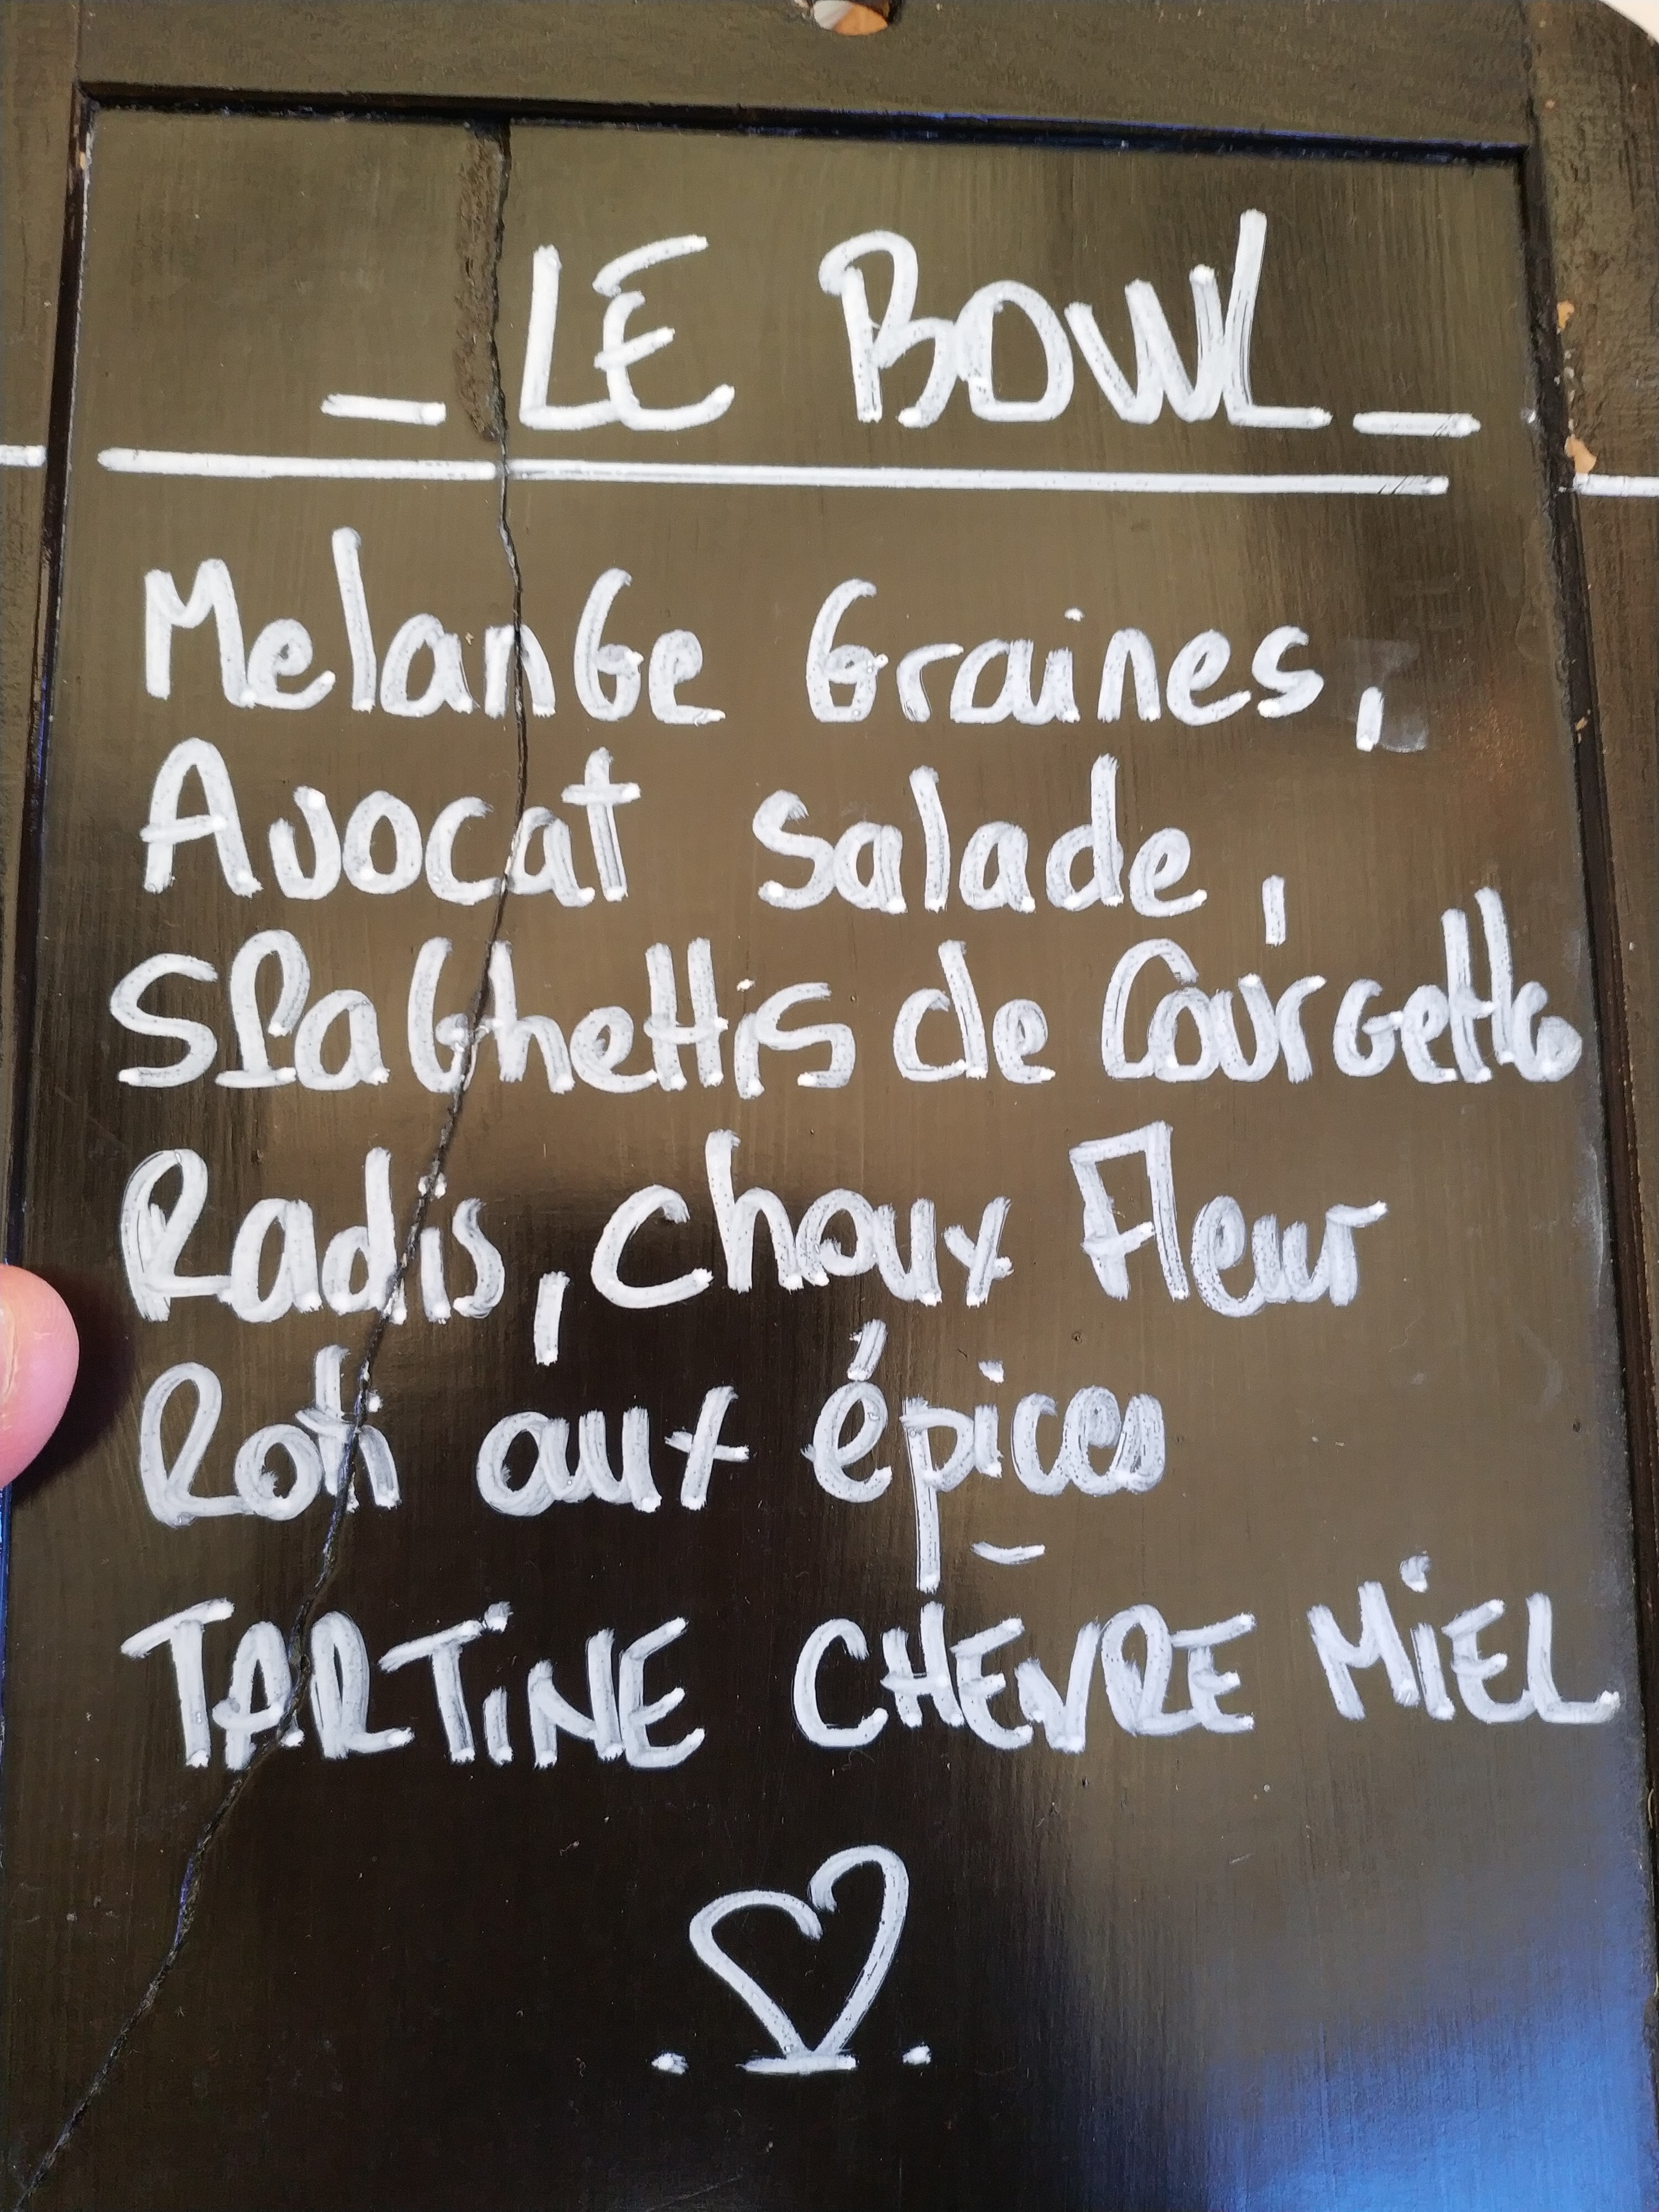 _ LE BOWL _
Melange Graines,
Avocat Salade,
Spaghettis de Courgette
Radis, choux Fleur
Roti aux épices
TARTiNE CHEVRE MiEL